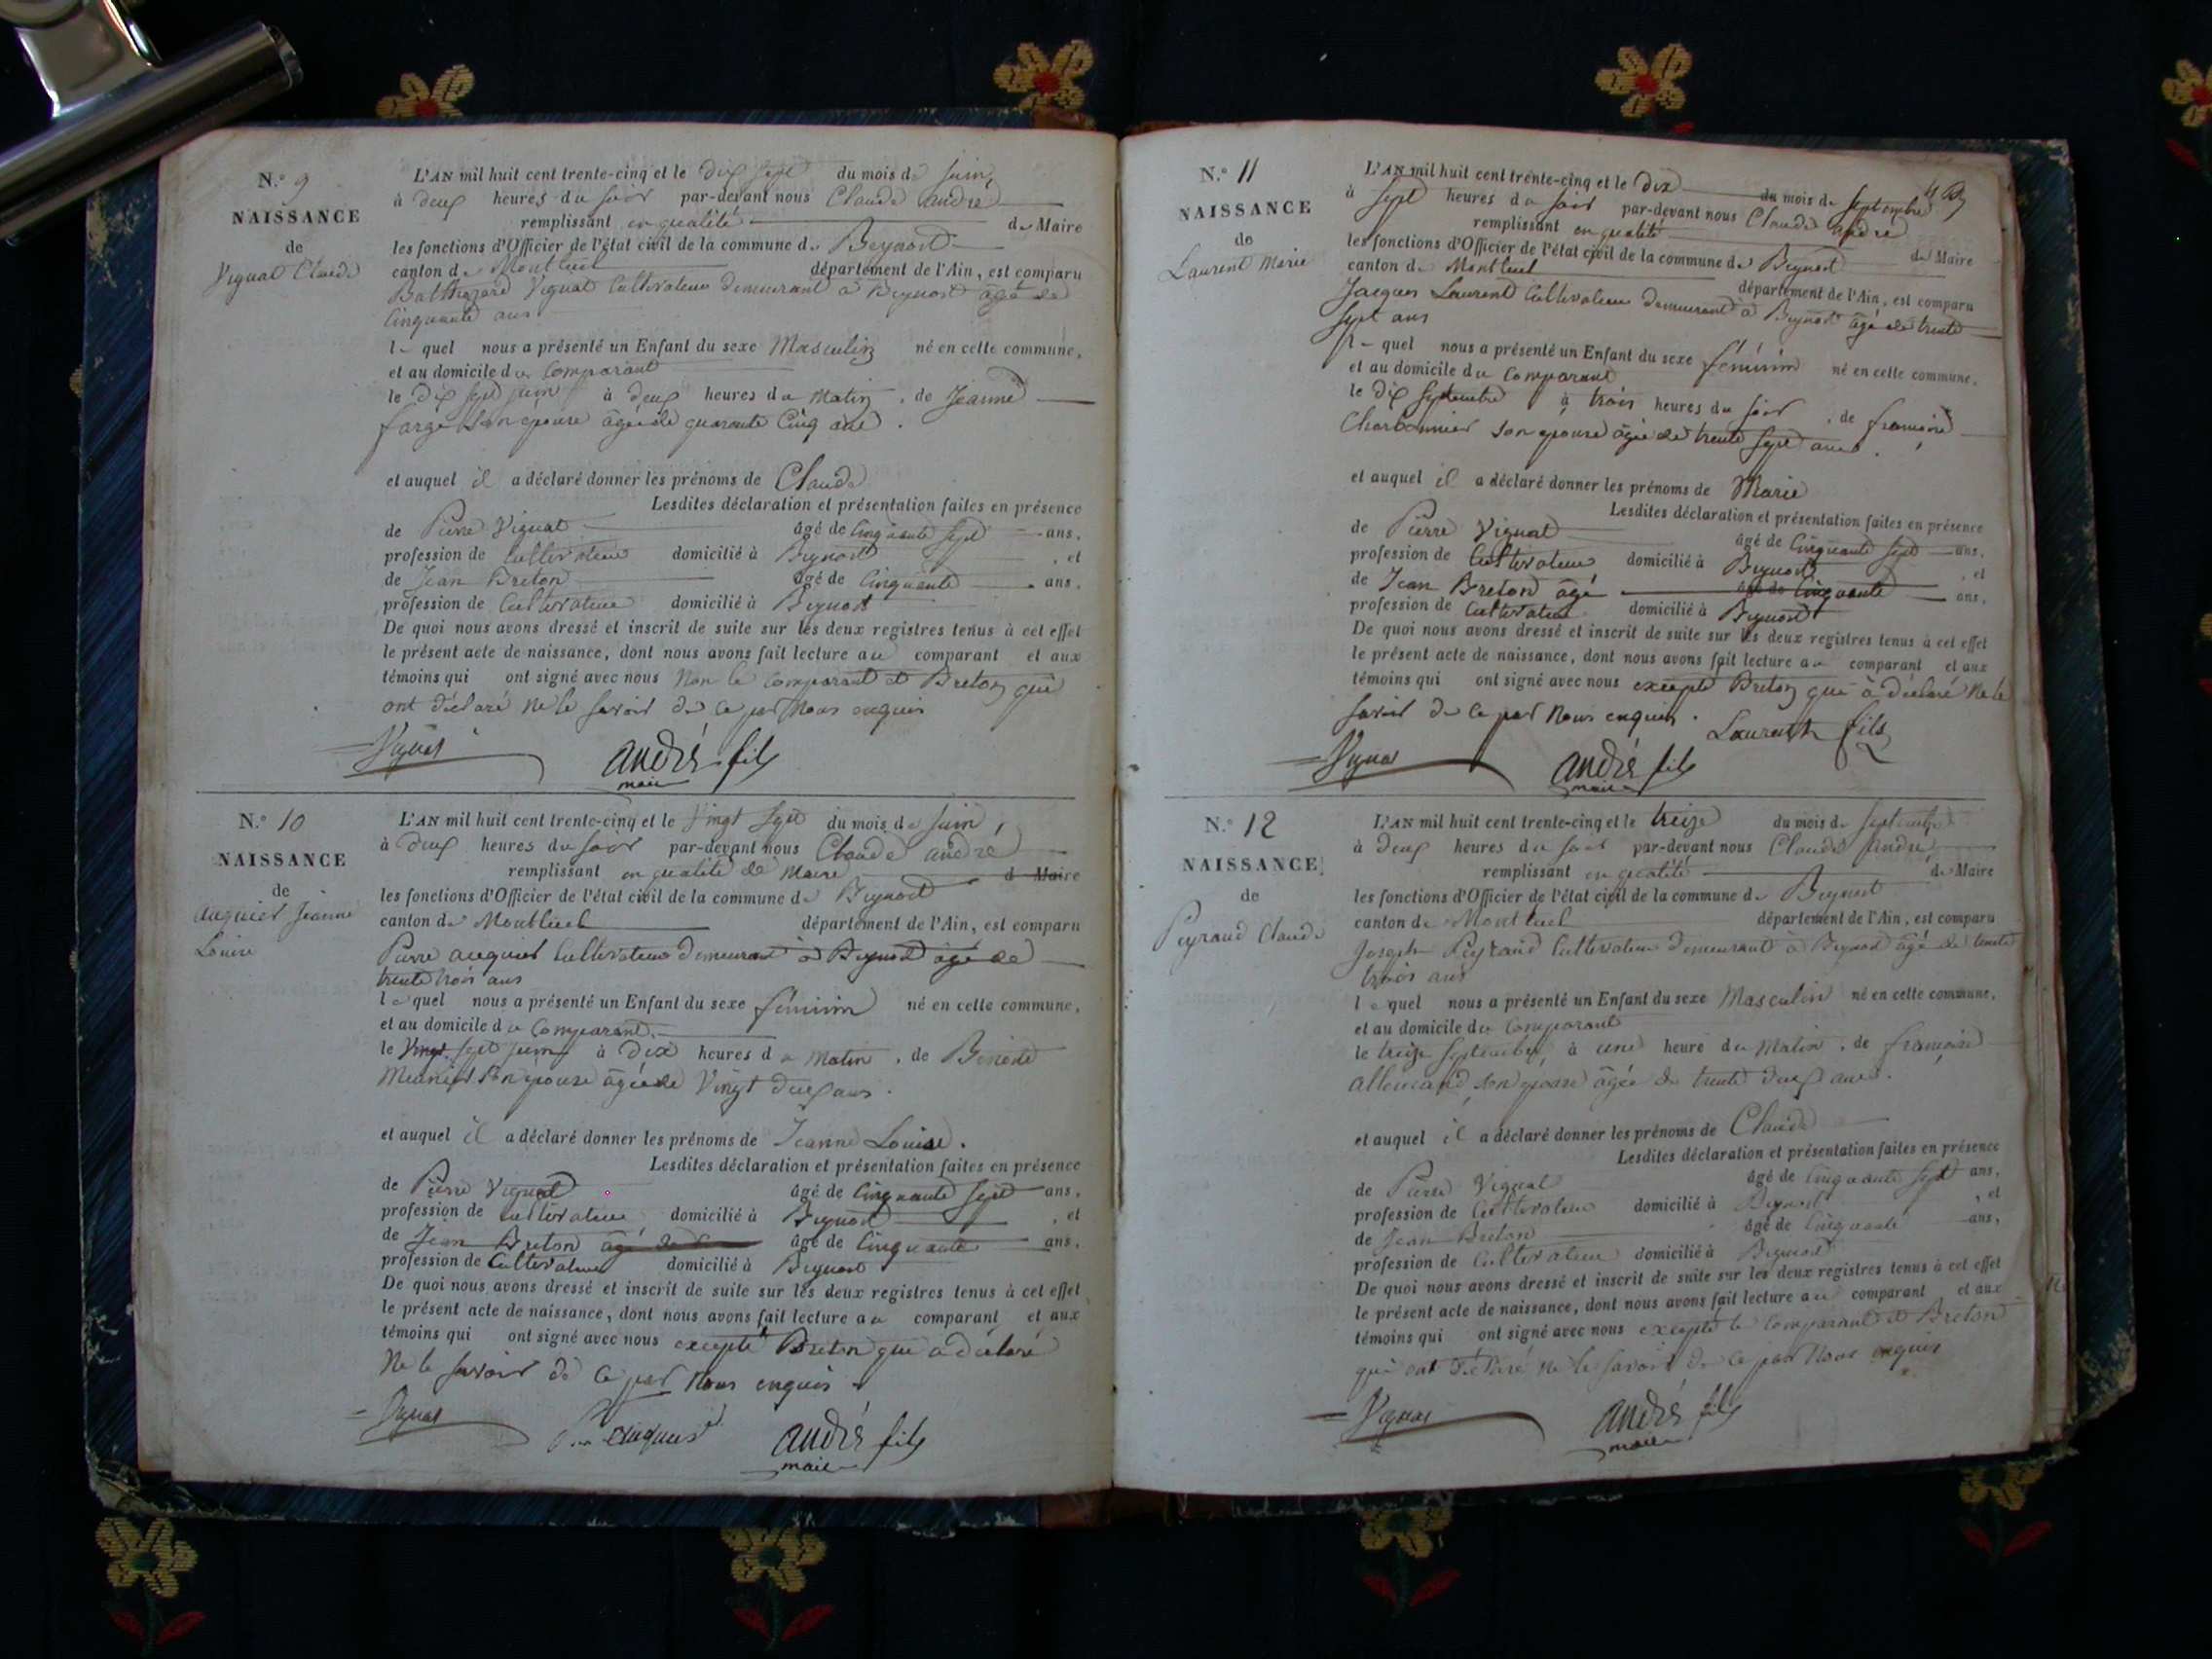 N.° 9
NAISSANCE
de
Vignat Claude
L'AN mil huit cent trente-cinq et le dix sept du mois de juin
à deux heures du soir par-devant nous Claude andré
remplissant en qualité de Maire
les fonctions d'Officier de l'état civil de la commune de Beynost
canton de Montluel département de l'Ain, est comparu
Balthazard Vignat Cultivateur demeurant à Beynost âgé de
Cinquante ans
le quel nous a présenté un Enfant du sexe Masculin né en cette commune,
et au domicile du Comparant
le dix sept juin à deux heures du Matin, de Jeanne
farge son épouse âgée de quarante Cinq ans.
et auquel il a déclaré donner les prénoms de Claude
Lesdites déclaration et présentation faites en présence
de Pierre Vignat âgé de Cinquante sept ans,
profession de Cultivateur domicilié à Beynost, et
de Jean Breton âgé de Cinquante ans,
profession de Cultivateur domicilié à Beynost
De quoi nous avons dressé et inscrit de suite sur les deux registres tenus à cet effet
le présent acte de naissance, dont nous avons fait lecture au comparant et aux
témoins qui ont signé avec nous Non le Comparant et Breton qui
ont déclaré ne le savoir de ce par Nous enquis
Vignat andré fils
maire
N.° 10
NAISSANCE
de
auquier Jeanne
Louise
L'AN mil huit cent trente-cinq et le Vingt Sept du mois de juin
à deux heures du soir par-devant nous Claude andré
remplissant en qualité de Maire de Maire
les fonctions d'Officier de l'état civil de la commune de Beynost
canton de Montluel département de l'Ain, est comparu
Pierre auquier Cultivateur demeurant à Beynost âgé de
trente trois ans
le quel nous a présenté un Enfant du sexe féminin né en cette commune,
et au domicile du Comparant
le Vingt sept juin à Dix heures du Matin, de Benoite
Meunier son épouse âgée de Vingt deux ans.
et auquel il a déclaré donner les prénoms de Jeanne Louise.
Lesdites déclaration et présentation faites en présence
de Pierre Vignat âgé de Cinquante Sept ans,
profession de Cultivateur domicilié à Beynost, et
de Jean Breton âgé de âgé de Cinquante ans,
profession de Cultivateur domicilié à Beynost
De quoi nous avons dressé et inscrit de suite sur les deux registres tenus à cet effet
le présent acte de naissance, dont nous avons fait lecture au comparant et aux
témoins qui ont signé avec nous excepté Breton qui a déclaré
Ne le savoir de ce par Nous enquis
Vignat andré fils
maire
N.° 11
NAISSANCE
de
Laurent Marie
L'AN mil huit cent trente-cinq et le dix du mois de Septembre
à Sept heures du soir par-devant nous Claude andré
remplissant en qualité de Maire
les fonctions d'Officier de l'état civil de la commune de Beynost
canton de Montluel département de l'Ain, est comparu
Jacques Laurent Cultivateur demeurant à Beynost âgé de trente
Sept ans
le quel nous a présenté un Enfant du sexe féminin né en cette commune,
et au domicile du Comparant
le dix Septembre à trois heures du soir, de françoise
Charbonnier son épouse âgée de trente sept ans.
et auquel il a déclaré donner les prénoms de Marie
Lesdites déclaration et présentation faites en présence
de Pierre Vignat âgé de Cinquante sept ans,
profession de Cultivateur domicilié à Beynost, et
de Jean Breton âgé âgé de Cinquante ans,
profession de Cultivateur domicilié à Beynost
De quoi nous avons dressé et inscrit de suite sur les deux registres tenus à cet effet
le présent acte de naissance, dont nous avons fait lecture au comparant et aux
témoins qui ont signé avec nous excepté Breton qui à déclaré Ne le
savoir de ce par Nous enquis. Laurent fils
Vignat andré fils
maire
N.° 12
NAISSANCE
de
Peyraud Claude
L'AN mil huit cent trente-cinq et le treize du mois de Septembre
à deux heures du soir par-devant nous Claude andré
remplissant en qualité de Maire
les fonctions d'Officier de l'état civil de la commune de Beynost
canton de Montluel département de l'Ain, est comparu
Joseph Peyraud Cultivateur demeurant à Beynost âgé de trente
trois ans
le quel nous a présenté un Enfant du sexe Masculin né en cette commune,
et au domicile du Comparant
le treize Septembre à une heure du Matin, de françoise
allemand son épouse âgée de trente deux ans.
et auquel il a déclaré donner les prénoms de Claude
Lesdites déclaration et présentation faites en présence
de Pierre Vignat âgé de Cinquante sept ans,
profession de Cultivateur domicilié à Beynost, et
de Jean Breton âgé de Cinquante ans,
profession de Cultivateur domicilié à Beynost
De quoi nous avons dressé et inscrit de suite sur les deux registres tenus à cet effet
le présent acte de naissance, dont nous avons fait lecture au comparant et aux
témoins qui ont signé avec nous excepté le Comparant et Breton
qui ont déclaré ne le savoir de ce par Nous enquis
Vignat andré fils
maire